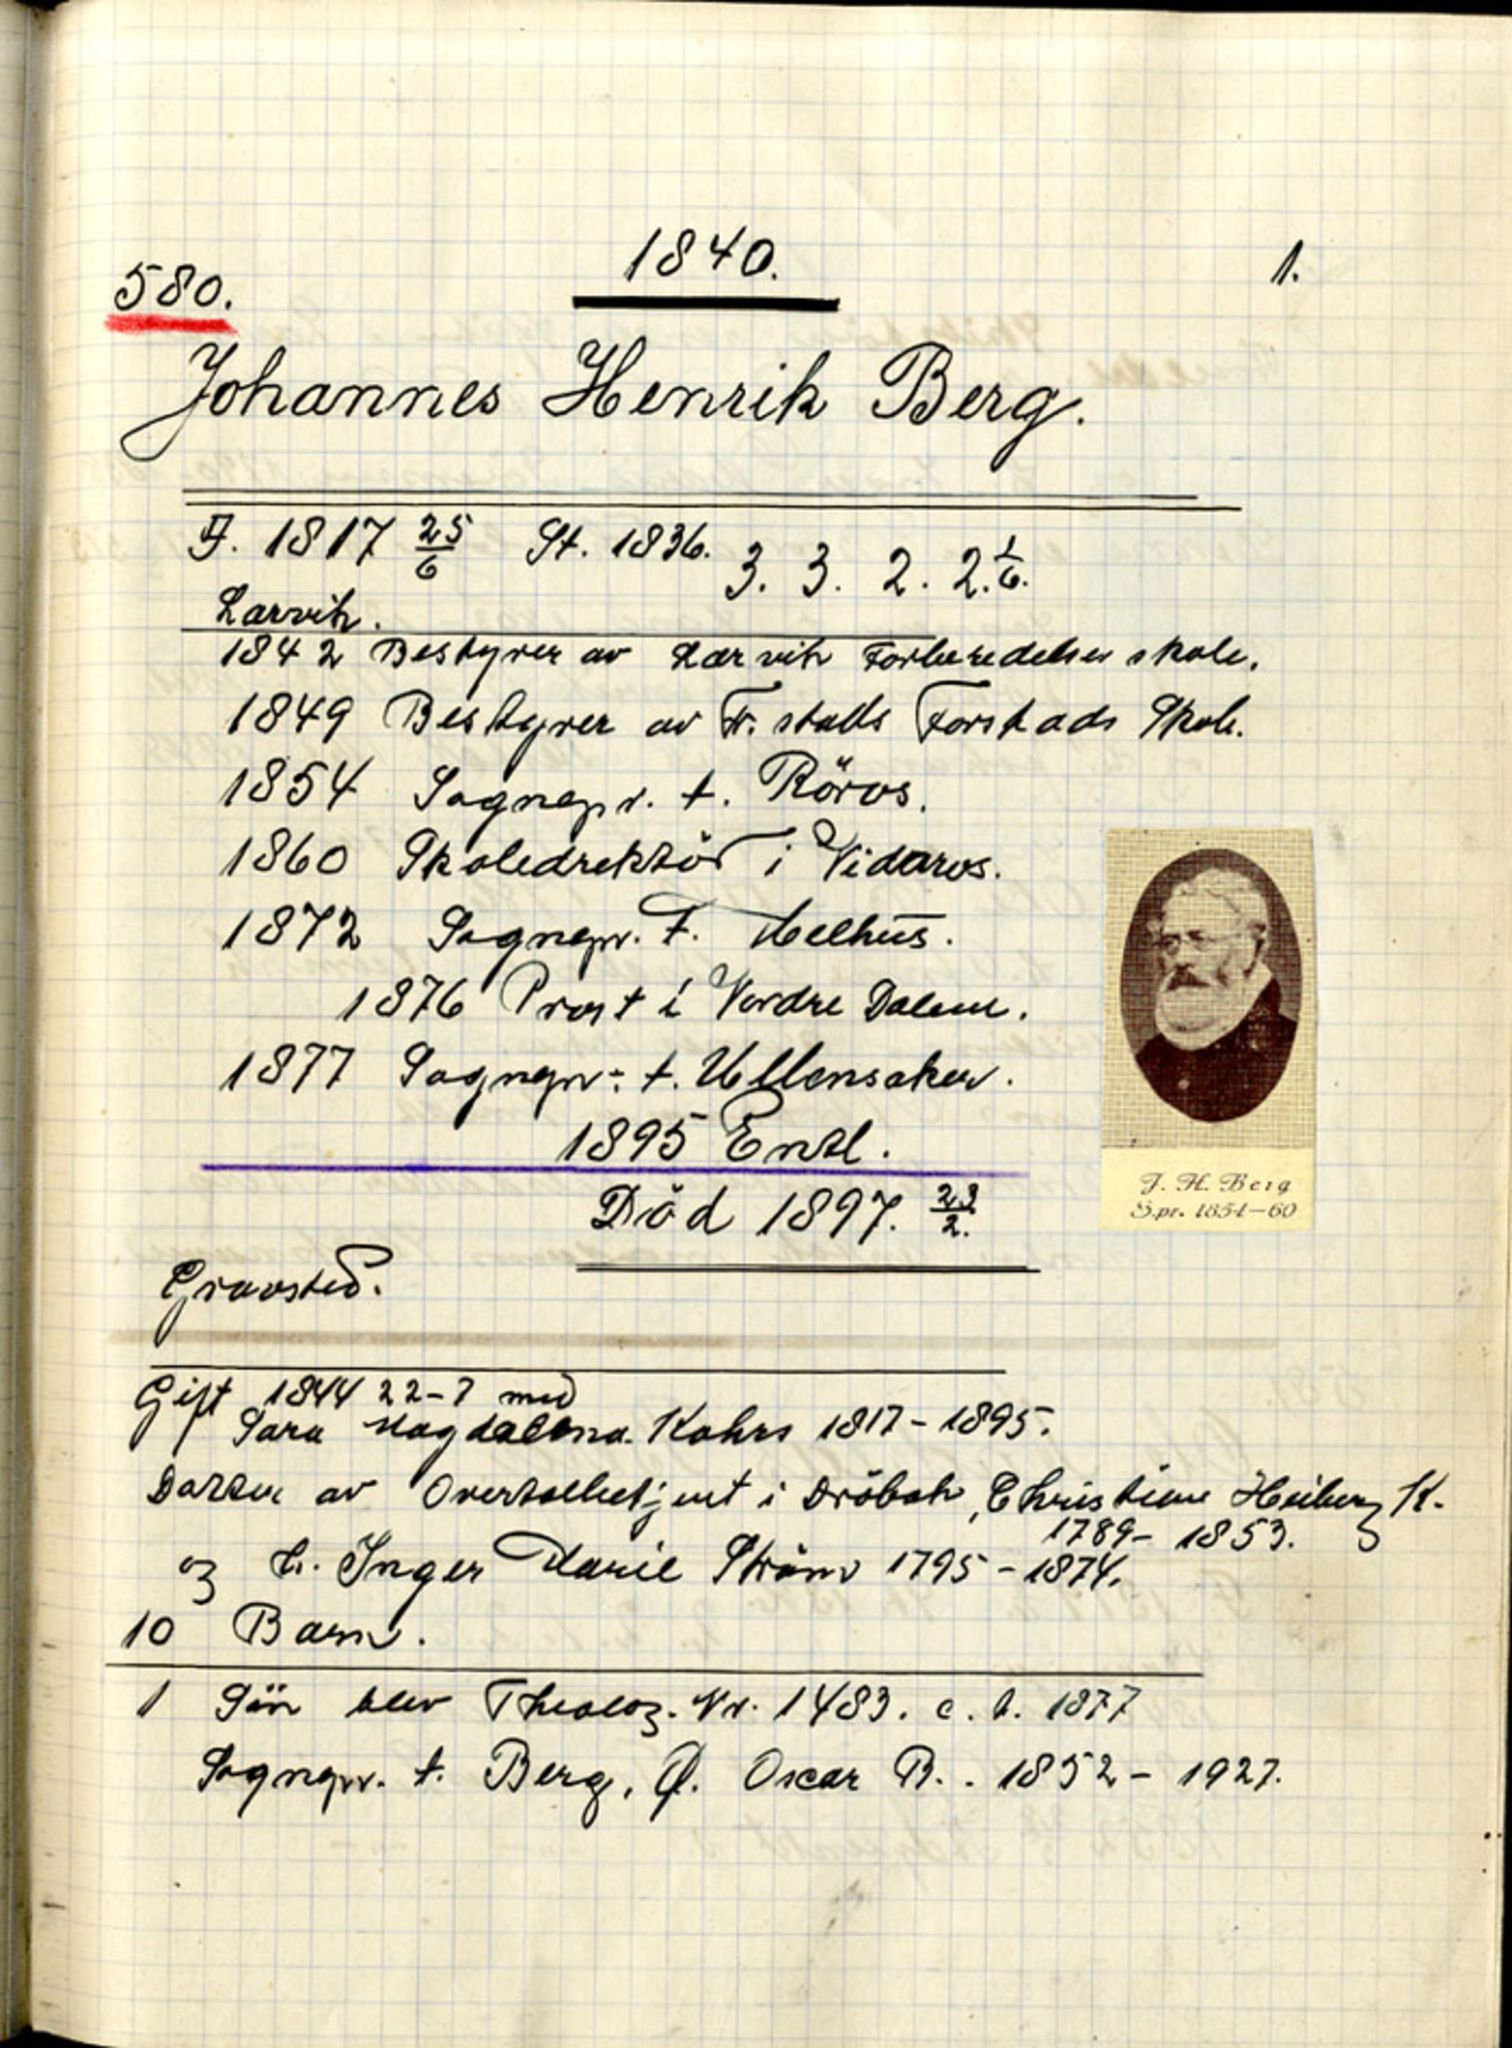 1840.
1.
580.
Johannes Henrik Berg.
F. 1817 25/6 St. 1836. 3. 3. 2. 2. 1/6.
Larvik.
1842 Bestyrer av Larvik Forberedelses skole.
1849 Bestyrer av Fr. stads Forstads Skole.
1854 Sognepr. t. Röros.
1860 Skoledirektör i Nidaros.
1872 Sognepr. t. Melhus.
1876 Prost i Nordre Dalene.
1877 Sognepr. t. Ullensaker.
1895 Entl.
Död 1897. 23/2.
J. H. Berg
S.pr. 1854-60
Gravsted.
Gift 1844 22-7 med
Sara Magdalena Kahrs 1817-1895.
Datter av Overtolbetjent i Dröbak, Christian Heiberg K.
1789-1853.
og h. Inger Marie Ström 1795-1874.
10 Barn.
1 Sön blev Theolog. Nr. 1483. c. t. 1877
Sognepr. t. Berg, Ø. Oscar B.. 1852-1927.